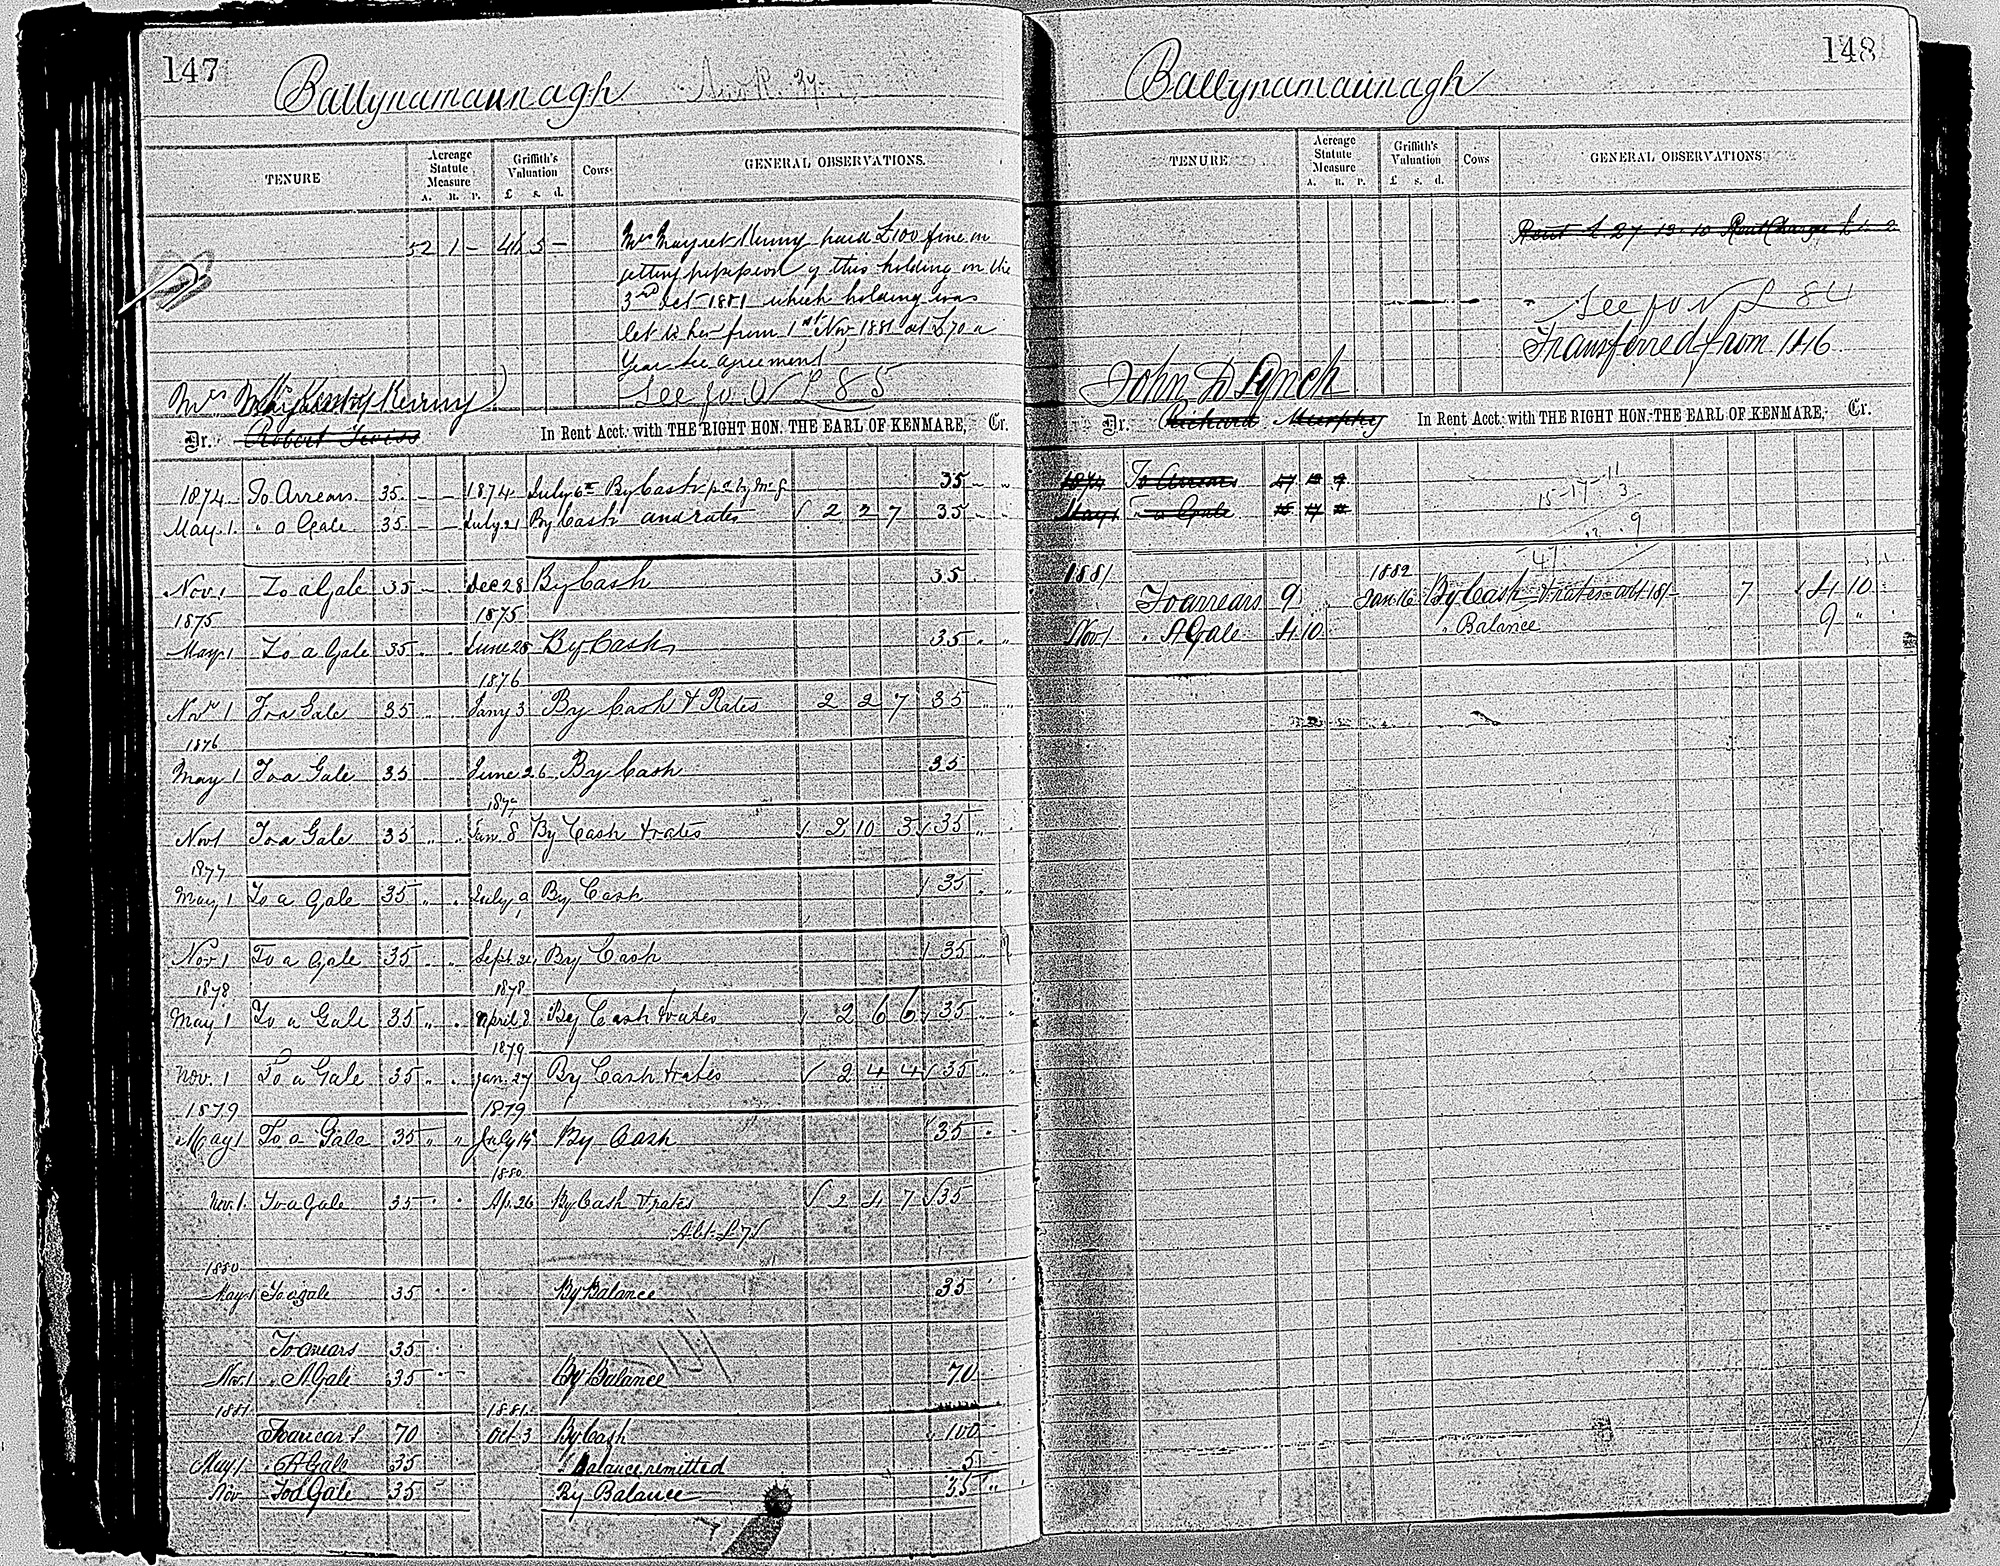 147
Ballynamaunagh
TENURE
Acreage Statute Measure
A. R. P.
Griffith's Valuation
£ s. d.
Cows
GENERAL OBSERVATIONS.
52 1 – 46 5 –
Mrs Margret Kenny paid £100 fine on
getting possession of this holding on the
3rd Oct 1881 which holding was
let to her from 1st Nov 1881 at £70 a
Year See Agreement
See fo N L 85
Mrs Kenny
Dr. Robert Twiss In Rent Acct. with THE RIGHT HON. THE EARL OF KENMARE, Cr.
1874 To Arrears 35 – – 1874 July 6th By Cash pd by 35 – "
May 1 " a Gale 35 – – July 21 By Cash and rates √ 2 2 7 35 " "
Nov 1 To a Gale 35 – . Dec 28 By Cash 35 .
1875 1875
May 1 To a Gale 35 . . June 28 By Cash 35 " "
1876
Novr 1 To a Gale 35 " . Jany 3 By Cash & Rates 2 2 7 35 " "
1876
May 1 To a Gale 35 June 26 By Cash 35
1877
Nov 1 To a Gale 35 " . Jan. 8 By Cash & rates √ 2 10 3 √ 35 " .
1877
May 1 To a Gale 35 " . July 9 By Cash √ 35 . "
Nov 1 To a Gale 35 " " Sept. By Cash √ 35 "
1878 1878
May 1 To a Gale 35 " . April 8 By Cash & rates √ 2 6 6 √ 35 " "
1879
Nov. 1 To a Gale 35 " . Jan. 27 By Cash & rates √ 2 4 4 √ 35 " "
1879 1879
May 1 To a Gale 35 " " July 14 By Cash √ 35 " .
1880
Nov. 1. To a Gale 35 . . Ap. 26 By Cash & rates √ 2 4 7 √ 35
Abt.
1880
May 1 To a gale 35 . . By Balance 35
To arrears 35
Nov. 1 " A Gale 35 By Balance 70
1881 1881
To arrears 70 Oct 3 By Cash 100
May 1 " A Gale 35 " Balance remitted 5
Nov To A Gale 35 By Balance 35 "
148
Ballynamaunagh
TENURE
Acreage Statute Measure
A. R. P.
Griffith's Valuation
£ s. d.
Cows
GENERAL OBSERVATIONS
Rent £ 27 13 10 Rent Charge £
See fo N L 84
Transferred from 146
John D Lynch
Dr. Richard Murphy In Rent Acct. with THE RIGHT HON. THE EARL OF KENMARE, Cr.
1874 To Arrears
May 1 " a Gale
15-17-11
3
9
47
1881 1882
To arrears 9 Jan 16 By Cash & rates abt 18/- 7 4 10
Nov 1 " A Gale 4 10 " Balance 9 "